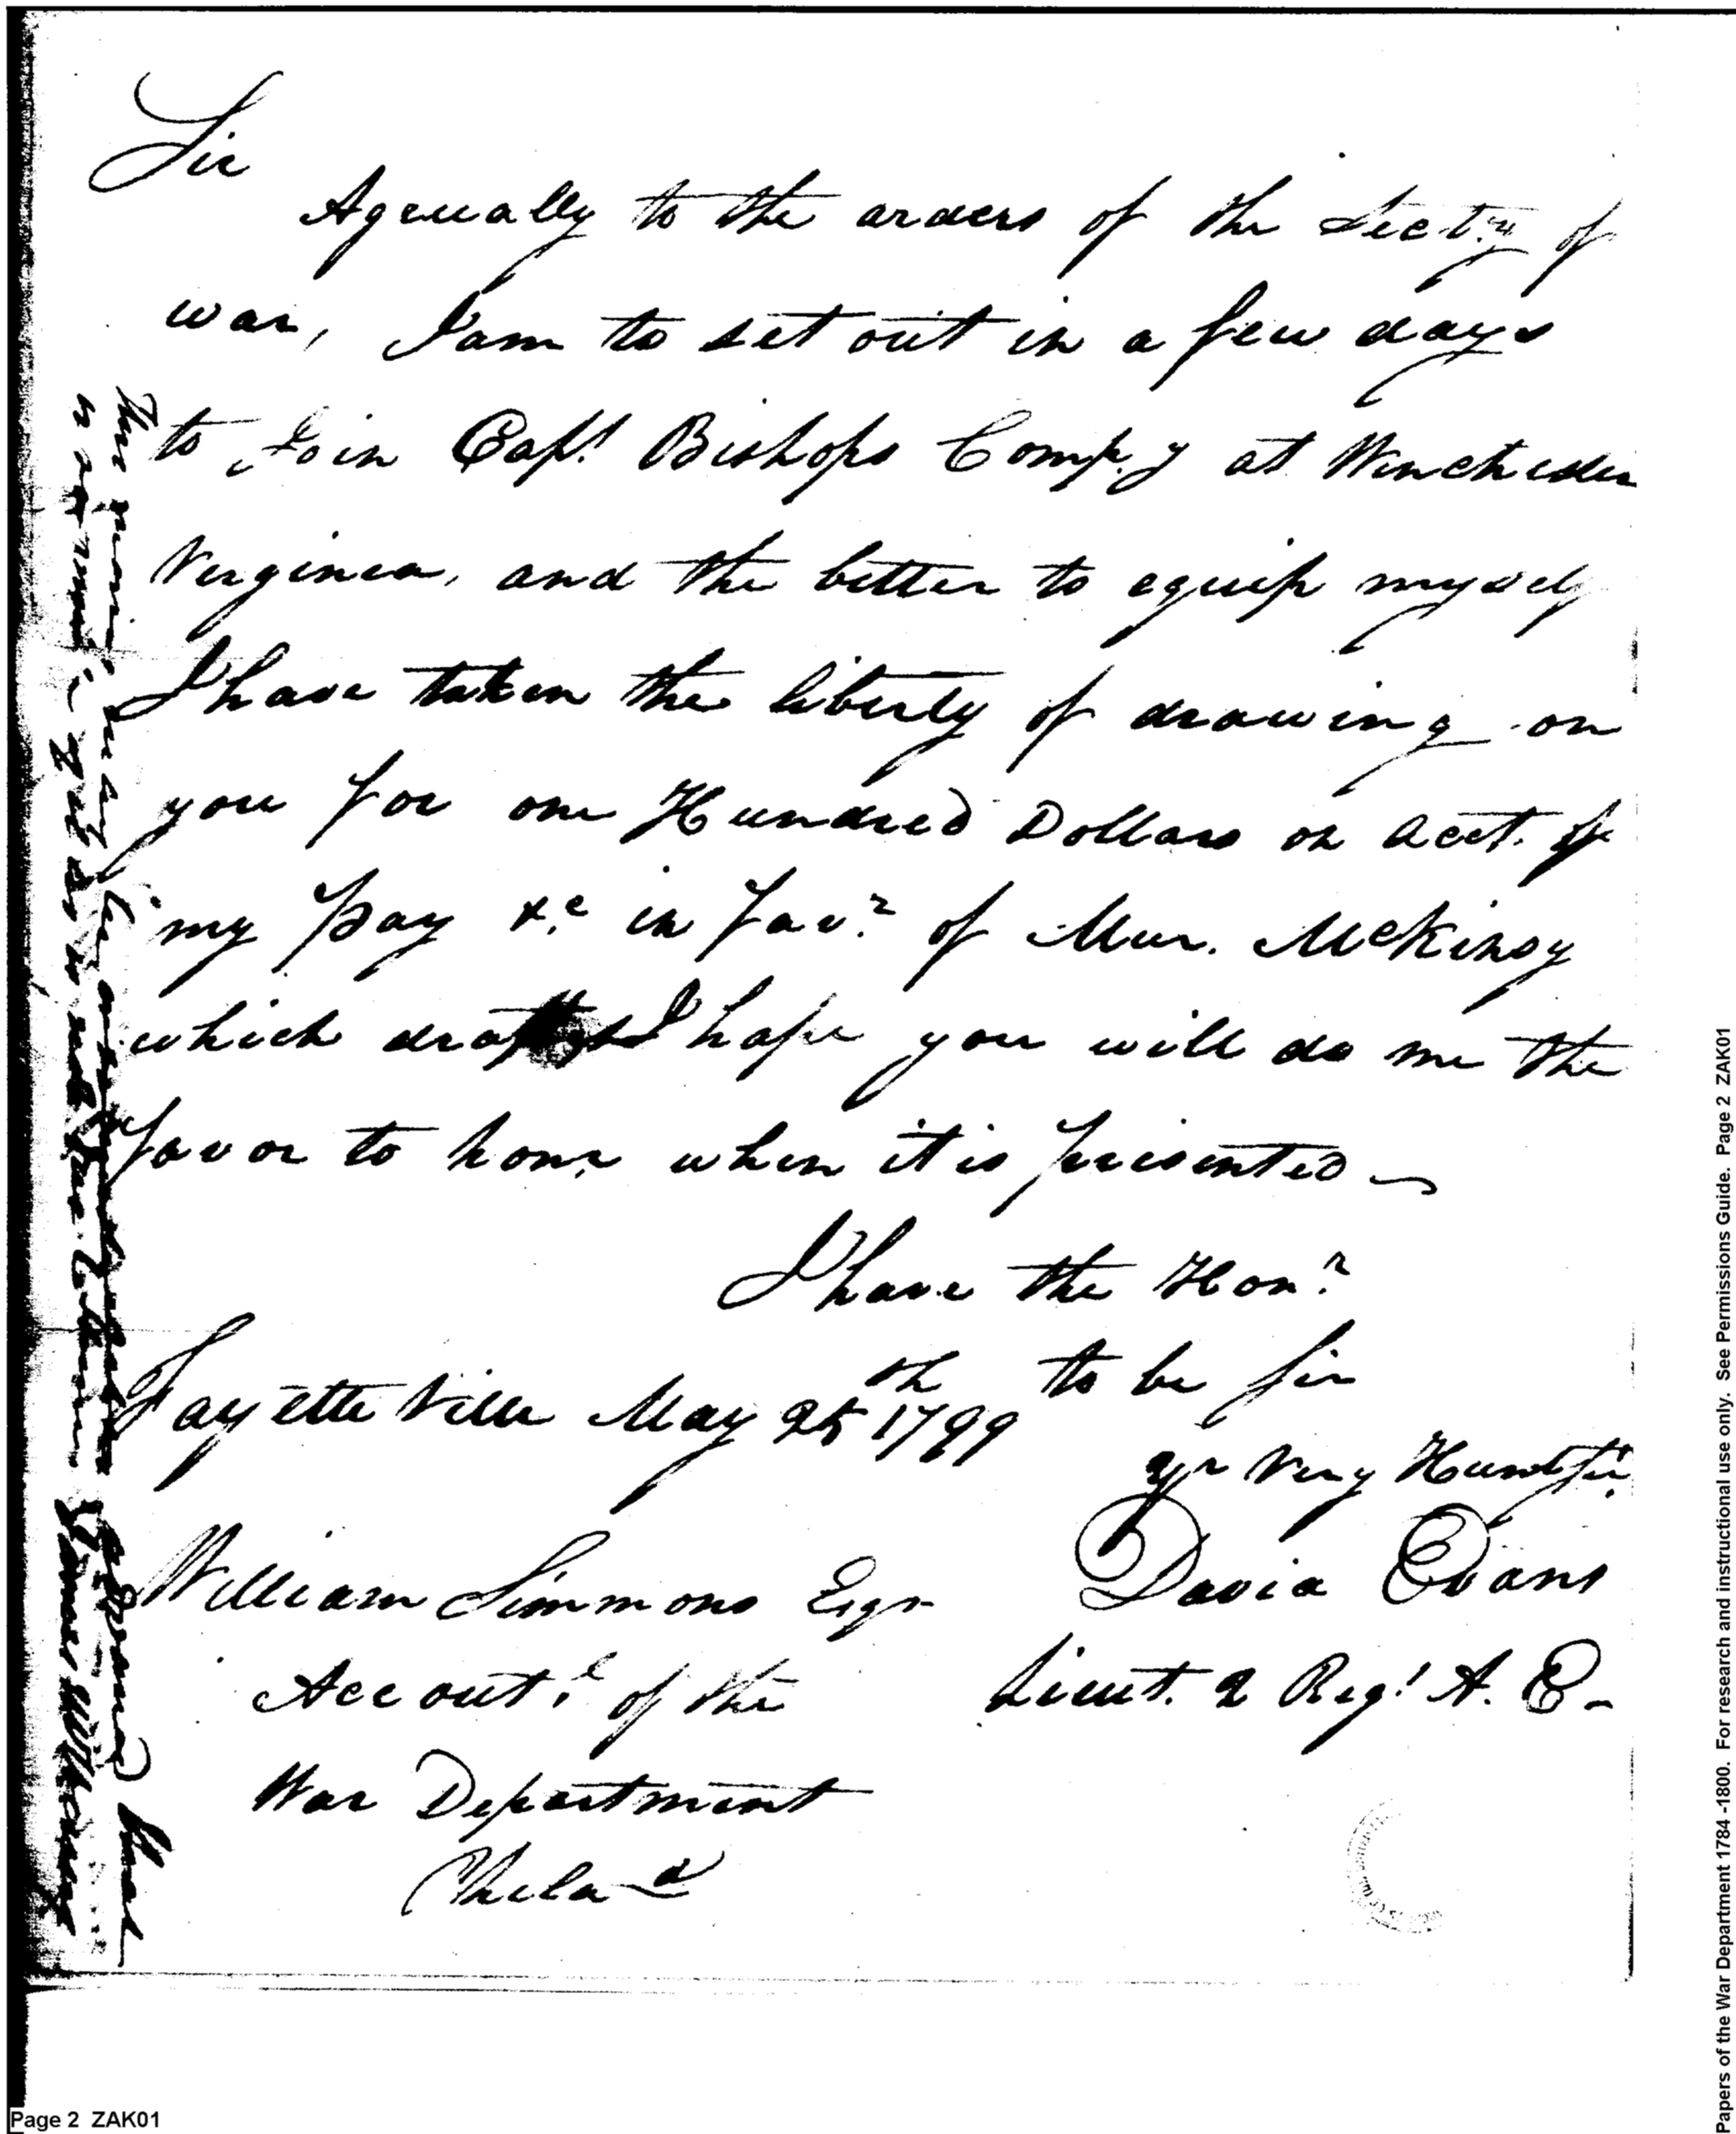 Sir
Agreeally to the orders of the Secty of
war, I am to set out in a few days
to Join Capt. Bishops Comp.y at Winchester
Verginea, and the better to equip myself
I have taken the liberty of drawing on
you for one Hundred Dollars on acct. of
my pay &c. in favr. of Mur. McKinsy
which draft I hope you will do me the
favor to honr when it is presented
I have the Honr.
to be Sir
Fayetteville May 25th 1799
yr Very Humb Sr.
William Simmons Esqr
David Evans
Accoutt. of the
Lieut. 2 Regt A. E
War Department
Philad
Page 2 ZAK01
Papers of the War Department 1784 -1800. For research and instructional use only. See Permissions Guide. Page 2 ZAK01